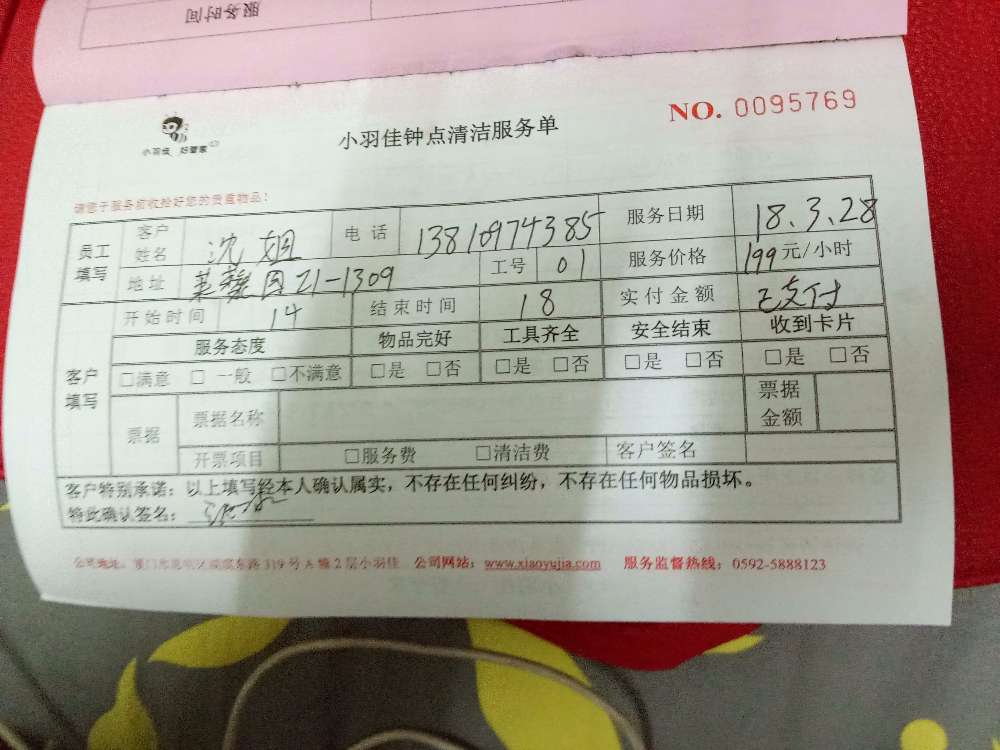 服务时间
小羽佳 好管家
小羽佳钟点清洁服务单
NO. 0095769
请您于服务前收拾好您的贵重物品！
员工填写 客户姓名 沈姐 电话 13810974385 服务日期 18.3.28
地址 园21-1309 工号 01 服务价格 199元/小时
客户填写 开始时间 14 结束时间 18 实付金额 已支付
服务态度 物品完好 工具齐全 安全结束 收到卡片
□满意 □一般 □不满意 □是 □否 □是 □否 □是 □否 □是 □否
票据 票据名称 票据金额
开票项目 □服务费 □清洁费 客户签名
客户特别承诺：以上填写经本人确认属实，不存在任何纠纷，不存在任何物品损坏。
特此确认签名：
公司地址：厦门市 东路319号A幢2层小羽佳 公司网站：www.xiaoyujia.com 服务监督热线：0592-5888123